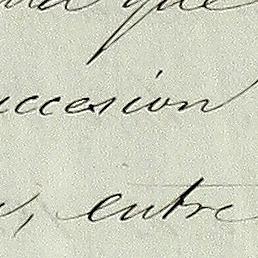 que
uccesion
, entre